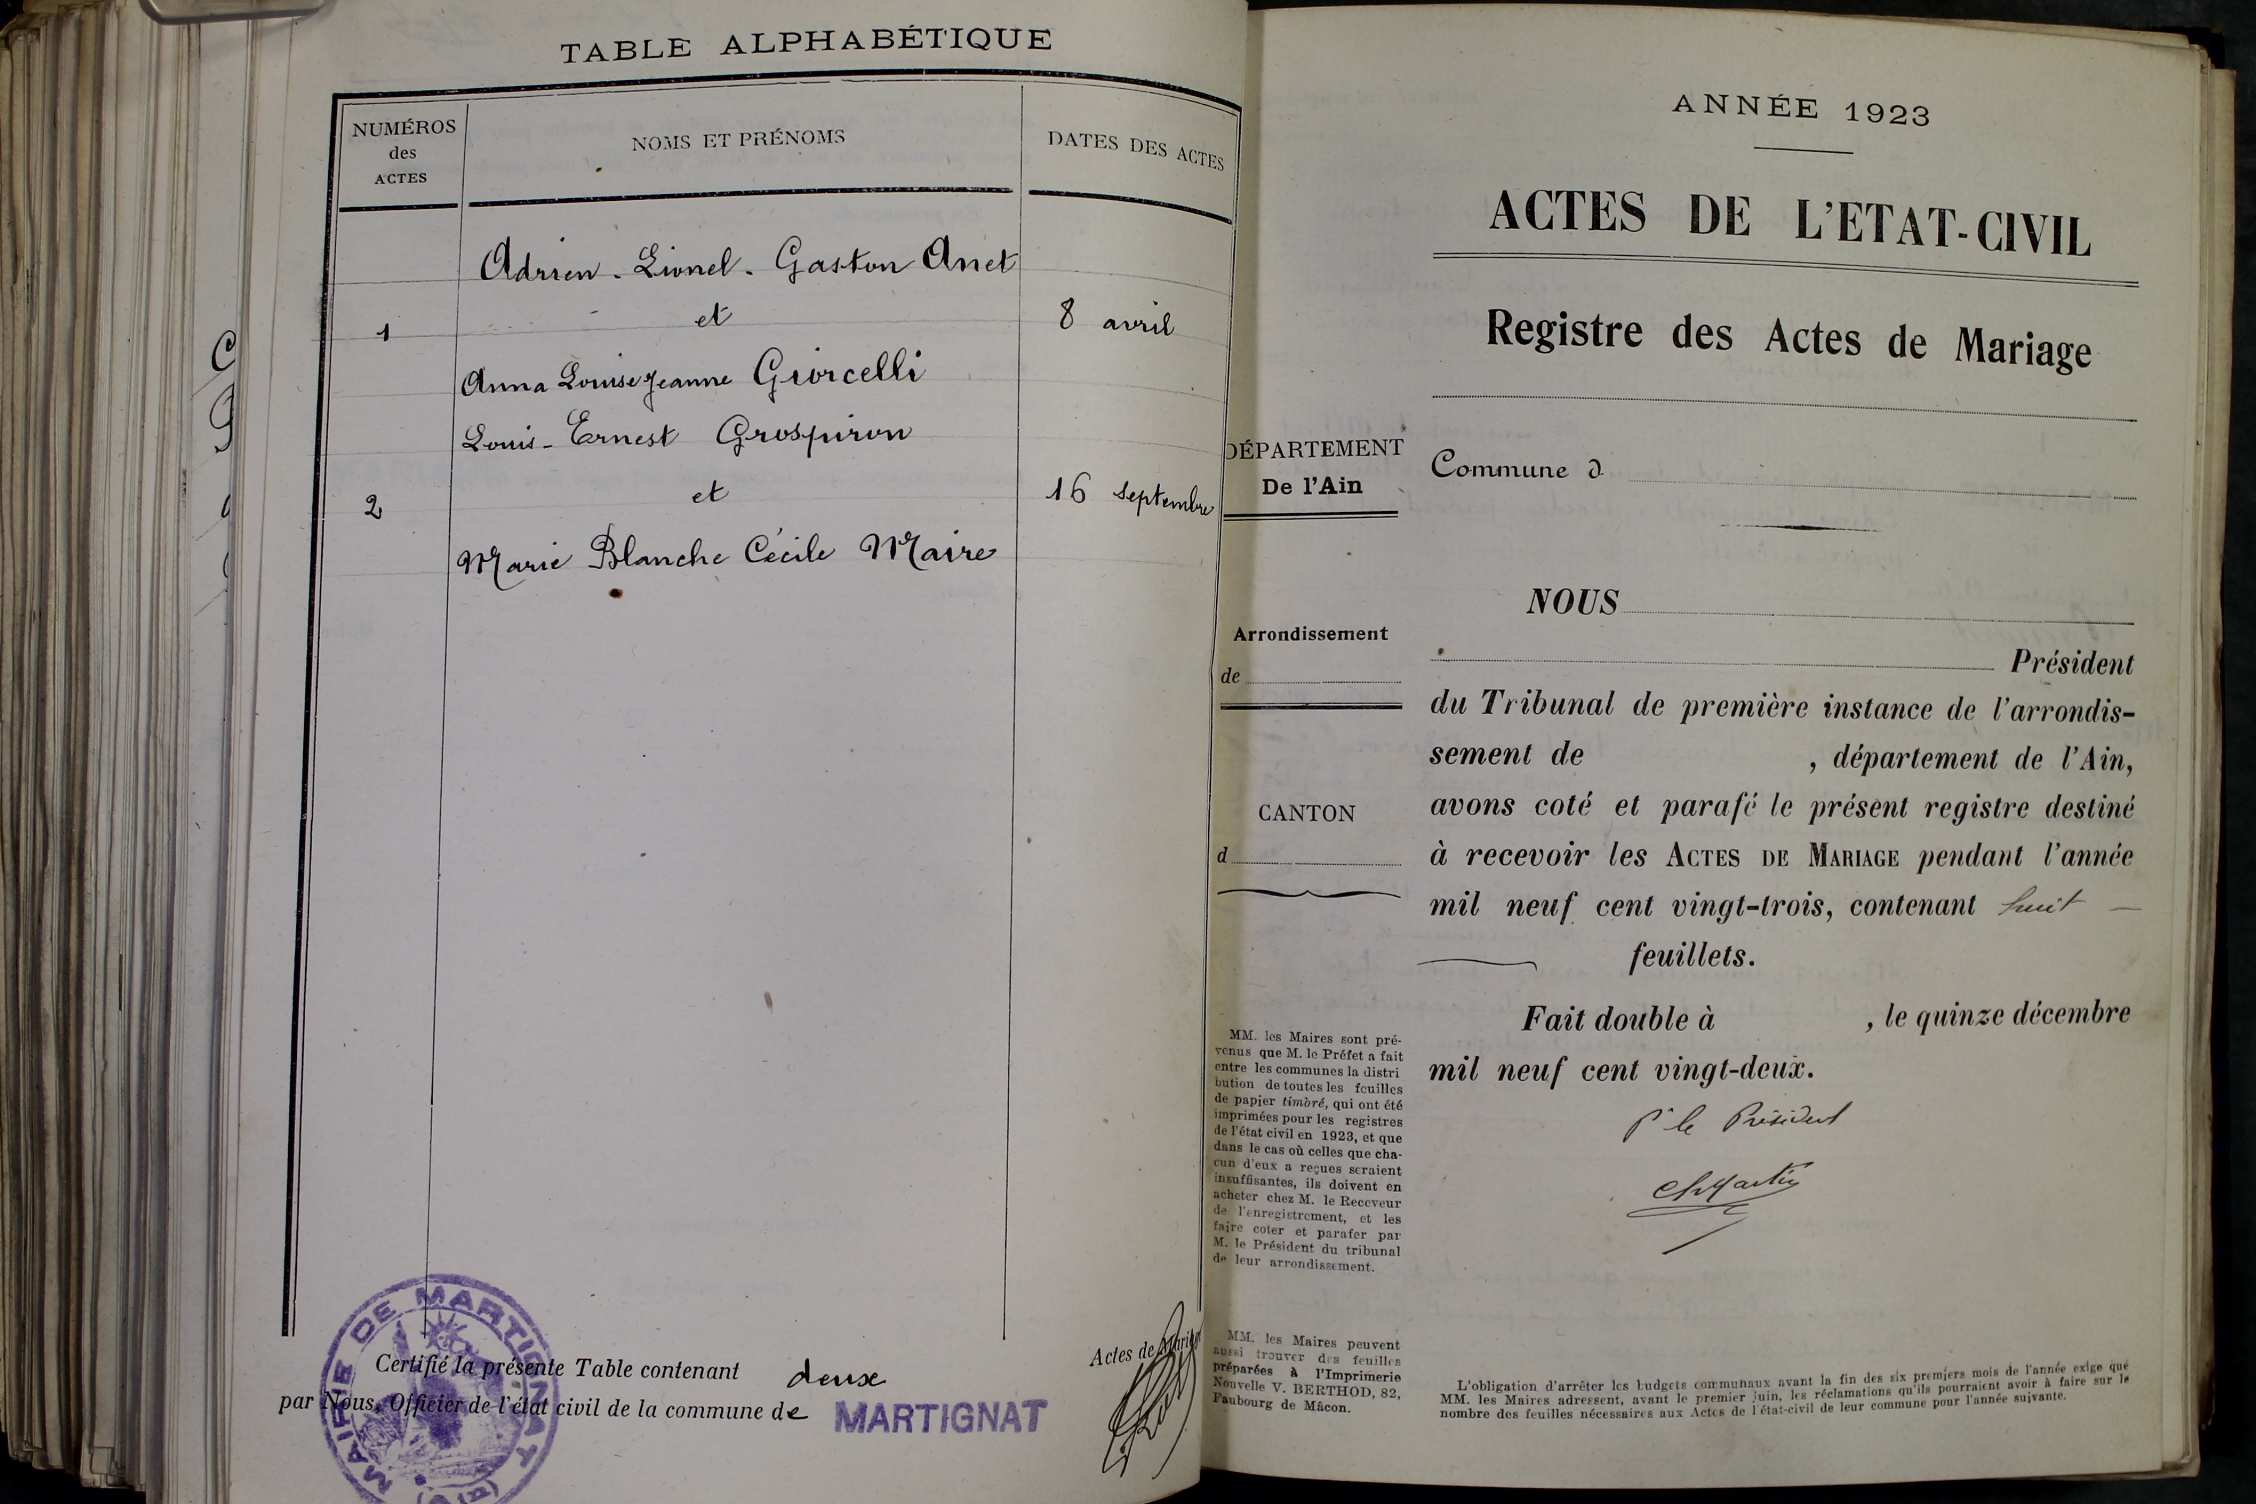 TABLE ALPHABÉTIQUE
NUMÉROS
des
ACTES
NOMS ET PRÉNOMS
DATES DES ACTES
Adrien - Lionel - Gaston Anet
1 et 8 avril
Anna Louise Jeanne Giorcelli
Louis - Ernest Grospiron
2 et 16 septembre
Marie Blanche Cécile Maire
Certifié la présente Table contenant deux
Actes de Mariage
par Nous, Officier de l'état civil de la commune de MARTIGNAT
MAIRIE DE MARTIGNAT
ANNÉE 1923
ACTES DE L'ETAT-CIVIL
Registre des Actes de Mariage
DÉPARTEMENT
De l'Ain
Arrondissement
de
CANTON
d
MM. les Maires sont pré-
venus que M. le Préfet a fait
entre les communes la distri
bution de toutes les feuilles
de papier timbré, qui ont été
imprimées pour les registres
de l'état civil en 1923, et que
dans le cas où celles que cha-
cun d'eux a reçues seraient
insuffisantes, ils doivent en
acheter chez M. le Receveur
de l'enregistrement, et les
faire coter et parafer par
M. le Président du tribunal
de leur arrondissement.
MM. les Maires peuvent
aussi trouver des feuilles
préparées à l'Imprimerie
Nouvelle V. BERTHOD, 82,
Faubourg de Mâcon.
Commune d
NOUS
Président
du Tribunal de première instance de l'arrondis-
sement de , département de l'Ain,
avons coté et parafé le présent registre destiné
à recevoir les ACTES DE MARIAGE pendant l'année
mil neuf cent vingt-trois, contenant huit
feuillets.
Fait double à , le quinze décembre
mil neuf cent vingt-deux.
Pr le Président
L'obligation d'arrêter les budgets communaux avant la fin des six premiers mois de l'année exige que
MM. les Maires adressent, avant le premier juin, les réclamations qu'ils pourraient avoir à faire sur le
nombre des feuilles nécessaires aux Actes de l'état-civil de leur commune pour l'année suivante.